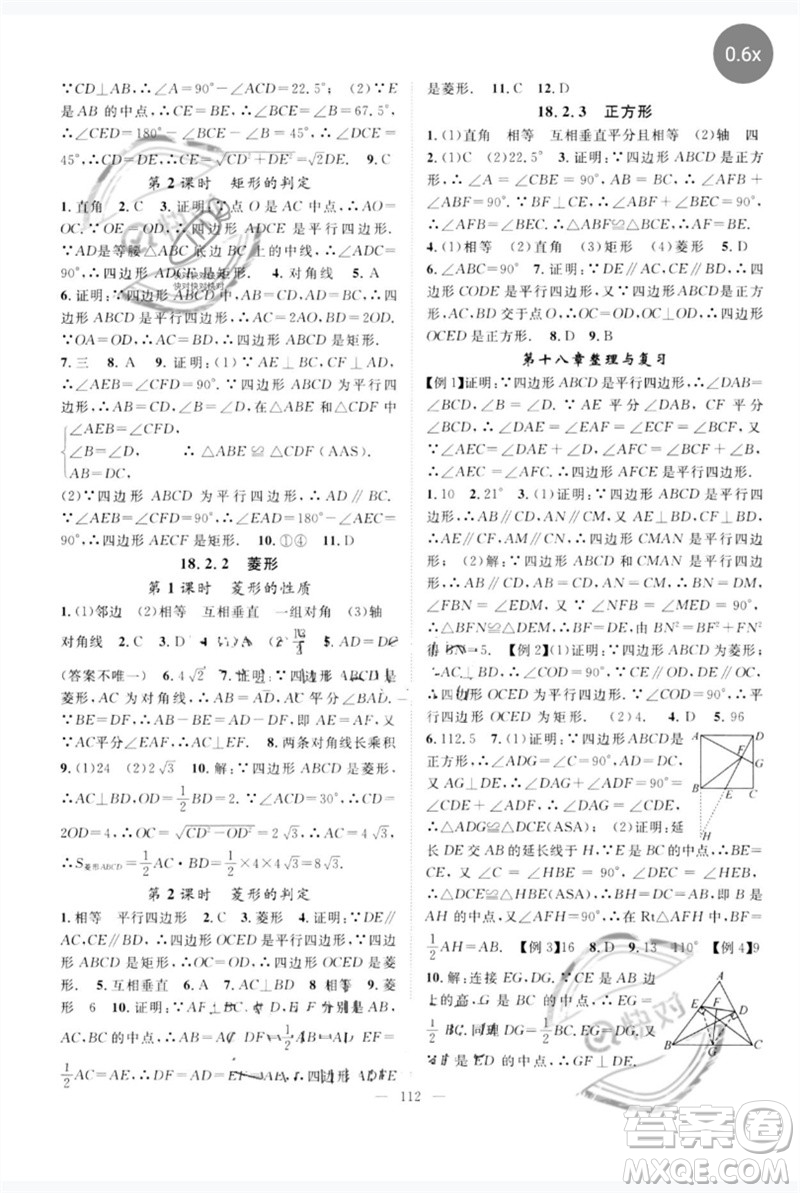 0.6x
∵CD⊥AB,∴∠A=90°-∠ACD=22.5°; (2)∵E
是AB的中点,∴CE=BE,∴∠BCE=∠B=67.5°,
∴∠CED=180°-∠B-∠BCE=45°,∴∠DCE=
45°=∠CED,∴CD=DE,∴CE=√(CD²+DE²)=√2DE. 9.C
第2课时 矩形的判定
1.直角 2.C 3.证明:∵点O是AC的中点,∴AO=
OC.∵OE=OD,∴四边形ADCE是平行四边形.
∵AD是等腰△ABC底边BC上的中线,∴∠ADC=
90°,∴四边形ADCE是矩形. 4.对角线 5.A
6.证明:∵四边形ABCD是平行四边形,∴AC=
2OA,BD=2OD.∵AC=BD,∴AC=2AO=2OD.
∵OA=OD,∴AC=BD,∴四边形ABCD是矩形.
7.三 8.2 9.证明:(1)∵AE⊥BC,CF⊥AD,
∴∠AEB=∠CFD=90°.∵四边形ABCD为平行四
边形,∴∠B=∠D,AB=CD,在△ABE和△CDF中,
{∠AEB=∠CFD,
∠B=∠D, ∴△ABE≌△CDF(AAS).
AB=DC,
(2)∵四边形ABCD为平行四边形,∴AD∥BC.
∵∠AEB=90°,∴∠EAD=180°-∠AEB=90°,
∴四边形AECF是矩形. 10.①④ 11.D
18.2.2 菱形
第1课时 菱形的性质
1.(1)邻边 (2)相等 互相垂直 一组对角 (3)轴
对角线 2.C 3.D 5.AD=
(答案不唯一) 6.4√2 7.证明:∵四边形ABCD是
菱形,AC为对角线,∴AB=AD,AC平分∠BAD.
∵BE=DF,∴AB-BE=AD-DF,即AE=AF.又
∵AC平分∠BAD,∴AC⊥EF. 8.两条对角线长乘积
9.(1)24 (2)2√3 10.解:∵四边形ABCD是菱形,
∴AC⊥BD,OD=1/2BD=2.∵∠ACD=30°,∴CD=
2OD=4,∴OC=√(CD²-OD²)=2√3,∴AC=4√3,
∴S菱形ABCD=1/2AC·BD=1/2×4×4√3=8√3.
第2课时 菱形的判定
1.相等 平行四边形 2.C 3.菱形 4.证明:∵DE∥
AC,CE∥BD,∴四边形OCED是平行四边形.∵四边
形ABCD是矩形,∴OC=OD,∴四边形OCED是菱
形. 5.互相垂直 6.A 7.D 8.相等 9.菱
形 6 10.证明:∵AF⊥BC,D,E,F分别是AB,
AC,BC的中点,∴AD=DF=1/2AB,AE=EF=
1/2AC=AE,∴DF=AD=EF=AE,∴四边形ADFE
是菱形. 11.C 12.D
18.2.3 正方形
1.(1)直角 相等 互相垂直平分且相等 (2)轴 四
2.(1)C (2)22.5° 3.证明:∵四边形ABCD是正方
形,∴∠A=∠CBE=90°.∵BF⊥CE,∴∠BEC+
∠ABF=90°.∵∠ABF+∠AFB=90°,
∴∠AFB=∠BEC.∴△ABF≌△BCE,∴BE=AF.
4.(1)相等 (2)直角 (3)矩形 (4)菱形 5.D
6.C 7.证明:∵CE∥BD,DE∥AC,∴四边
形CODE是平行四边形.∵四边形ABCD是正方形,
AC,BD交于点O,∴OC=OD,∠COD=90°,∴四边形
OCED是正方形. 8.D 9.B
第十八章整理与复习
【例1】证明:∵四边形ABCD是平行四边形,∴∠DAB=
∠BCD,AD∥BC.∵AE平分∠BAD,CF平分
∠BCD,∴∠EAD=∠BCF.∵AD∥BC,∴∠AEB=
∠EAD,∴∠AEB=∠BCF,∴AE∥CF,∴四边形
AECF是平行四边形,∴AE=CF.
1.10 2.21° 3.(1)证明:∵四边形ABCD是平行四
边形,∴AB∥CD,AN∥CM.又AM⊥BD,CN⊥BD,
∴AM∥CN,∴四边形CMAN是平行四边
形; (2)解:∵四边形AMCN是平行四边形,
∴CM=AN.∵四边形ABCD是平行四边形,
∴CD=AB,CD∥AB,∴DM=BN,∠MDE=
∠FBN,∠CNF=∠AME,∴∠DEM=∠BFN,
∴△BFN≌△DEM,∴BF=DE=4.∵BN²=BF²+
5. 【例2】(1)证明:∵四边形ABCD为菱形,
∴AC⊥BD,∴∠COD=90°.∵CE∥OD,DE∥OC,
∴四边形OCED是平行四边形,∠COD=90°,∴平
行四边形OCED是矩形. (2)4. 4.D 5.96
6.112.5 7.(1)证明:∵四边形ABCD是
正方形,∴∠ADG=∠C=90°,AD=DC.
又AG⊥DE,∴∠DAG+∠ADF=90°=
∠CDE+∠ADF,∴∠DAG=∠CDE,
∴△ADG≌△DCE(ASA); (2)证明:延
长DE交AB的延长线于点H.∵E是BC的中点,
∴BE=CE.∵∠C=∠HBE=90°,∠DEC=∠HEB,
∴△DCE≌△HBE(ASA),∴BH=DC=AB,即B是
AH的中点.又∵∠AFH=90°,∴在Rt△AFH中,BF=
1/2AH=AB. 【例3】16 8.D 9.13 【例4】9
10.解:连接EG,DG.∵CE是AB边
上的高,G是BC的中点,∴EG=
1/2BC.同理DG=1/2BC.∴EG=DG.又
∵F是ED的中点,∴GF⊥DE.
A D F G B E C H
快对
快对快对快对
112
答案圈
MXQE.COM